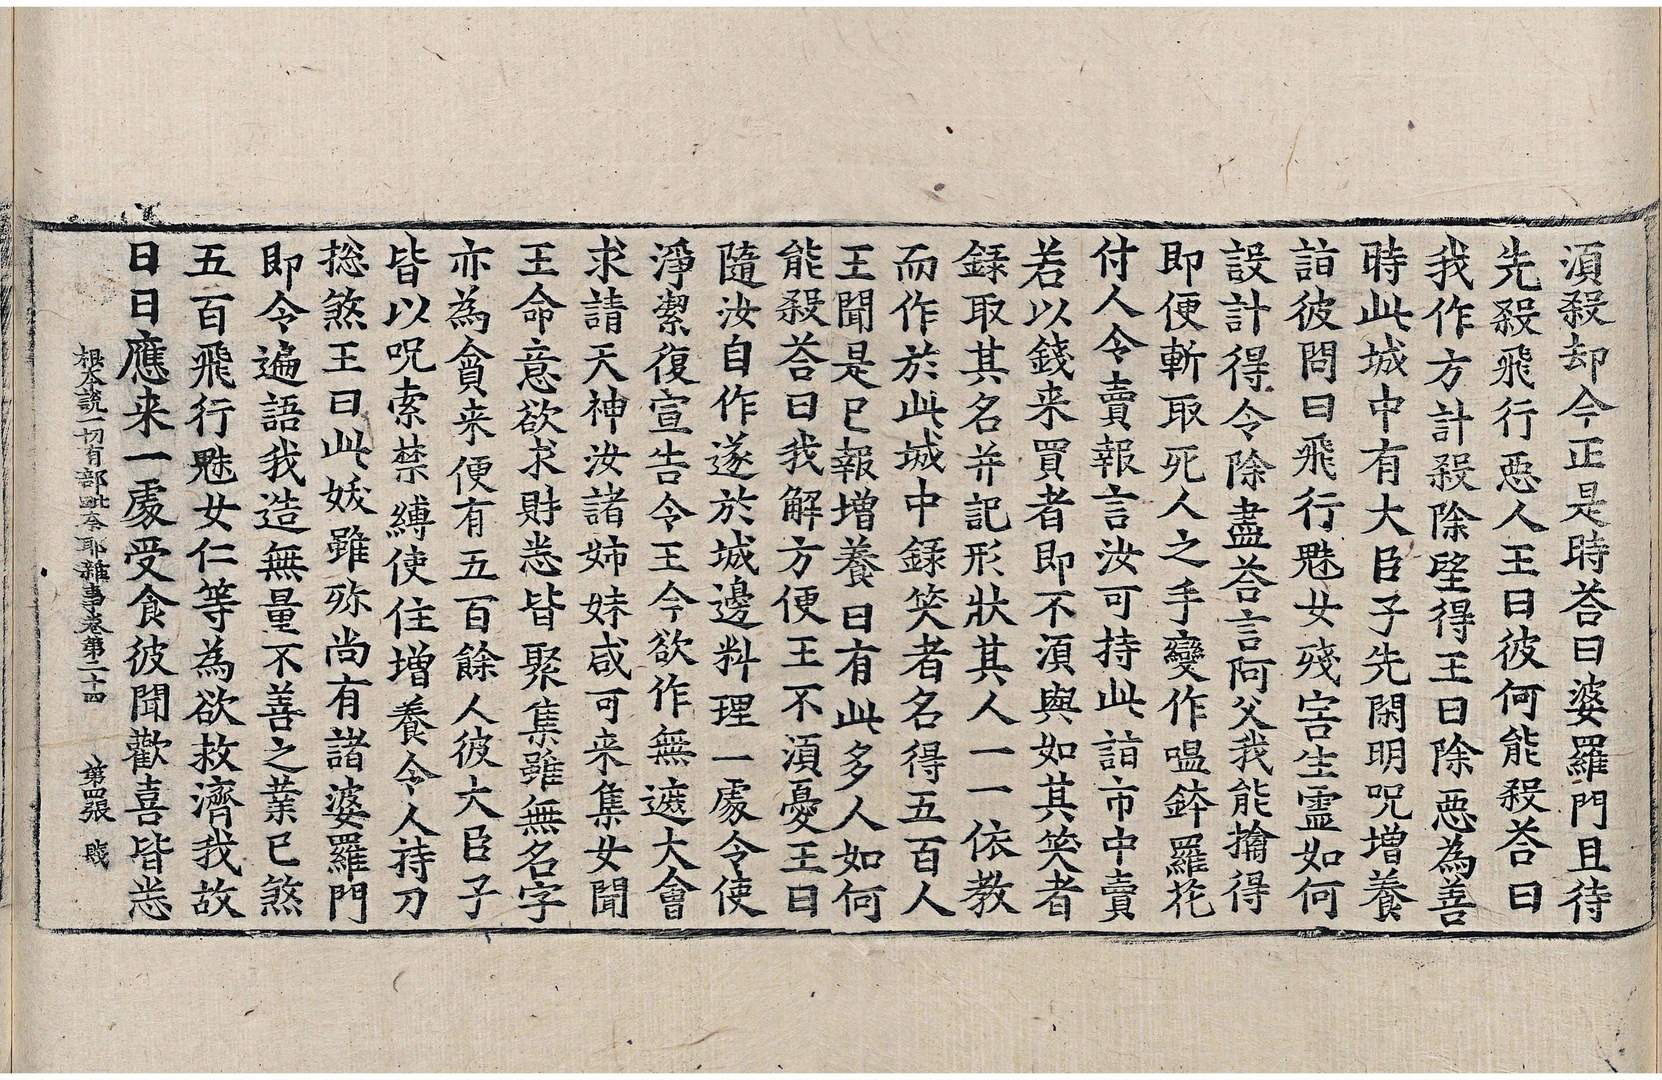 湏殺却今正是時荅曰婆羅門且待
先殺飛行惡人王曰彼何能殺荅曰
我作方計殺除望得王曰除惡為善
時此城中有大臣子先閑明呪增養
詣彼問曰飛行魅女殘害生靈如何
設計得令除盡荅言阿父我能擒得
即便斬取死人之手變作嗢鉢羅花
付人令賣報言汝可持此詣市中賣
若以錢来買者即不湏與如其笑者
録取其名并記形狀其人一一依教
而作於此城中録笑者名得五百人
王聞是已報增養曰有此多人如何
能殺荅曰我解方便王不湏憂王曰
隨汝自作遂於城邊料理一處令使
淨潔復宣告令王今欲作無遮大會
求請天神汝諸姉妹咸可来集女聞
王命意欲求財悉皆聚集雖無名字
亦為貪来便有五百餘人彼大臣子
皆以呪索禁縛使住增養令人持刀
捴煞王曰此妖雖殄尚有諸婆羅門
即令遍語我造無量不善之業已煞
五百飛行魅女仁等為欲救濟我故
日日應来一處受食彼聞歡喜皆悉
根本說一切有部毗奈耶雜事卷第二十四 第四張 賤